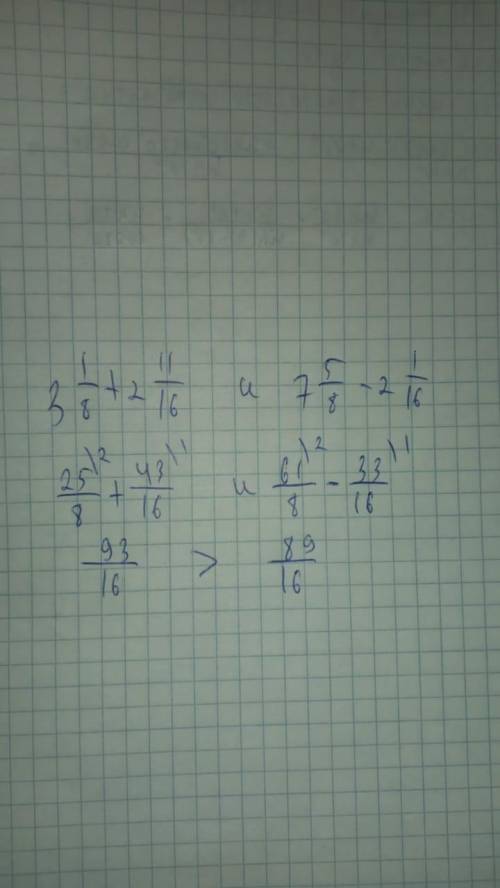 3 1/8 + 2 11/16 и 7 5/8 - 2 1/16
25/8 \2 + 43/16 \1 и 61/8 \2 - 33/16 \1
93/16 > 89/16